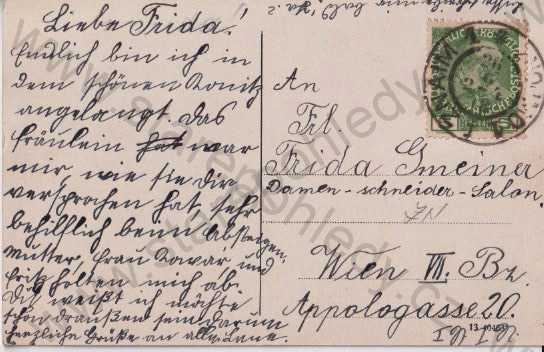 Liebe Frida!
Endlich bin ich in
dem schönen Konitz
angelangt. Das
Fräulein hat war
mir, wie sie dir
versprochen hat, sehr
behilflich beim absteigen.
Mutter, Frau Kovar und
Fritz holten mich ab.
Du weißt ich möchte
schon draußen sein darum
herzliche Grüße an alle
An
Frl.
Frida Gmeiner
Damen-schneider-Salon
Wien VII. Bz.
Appologasse 20.
ZNAIM 1
www.starepohledy.cz